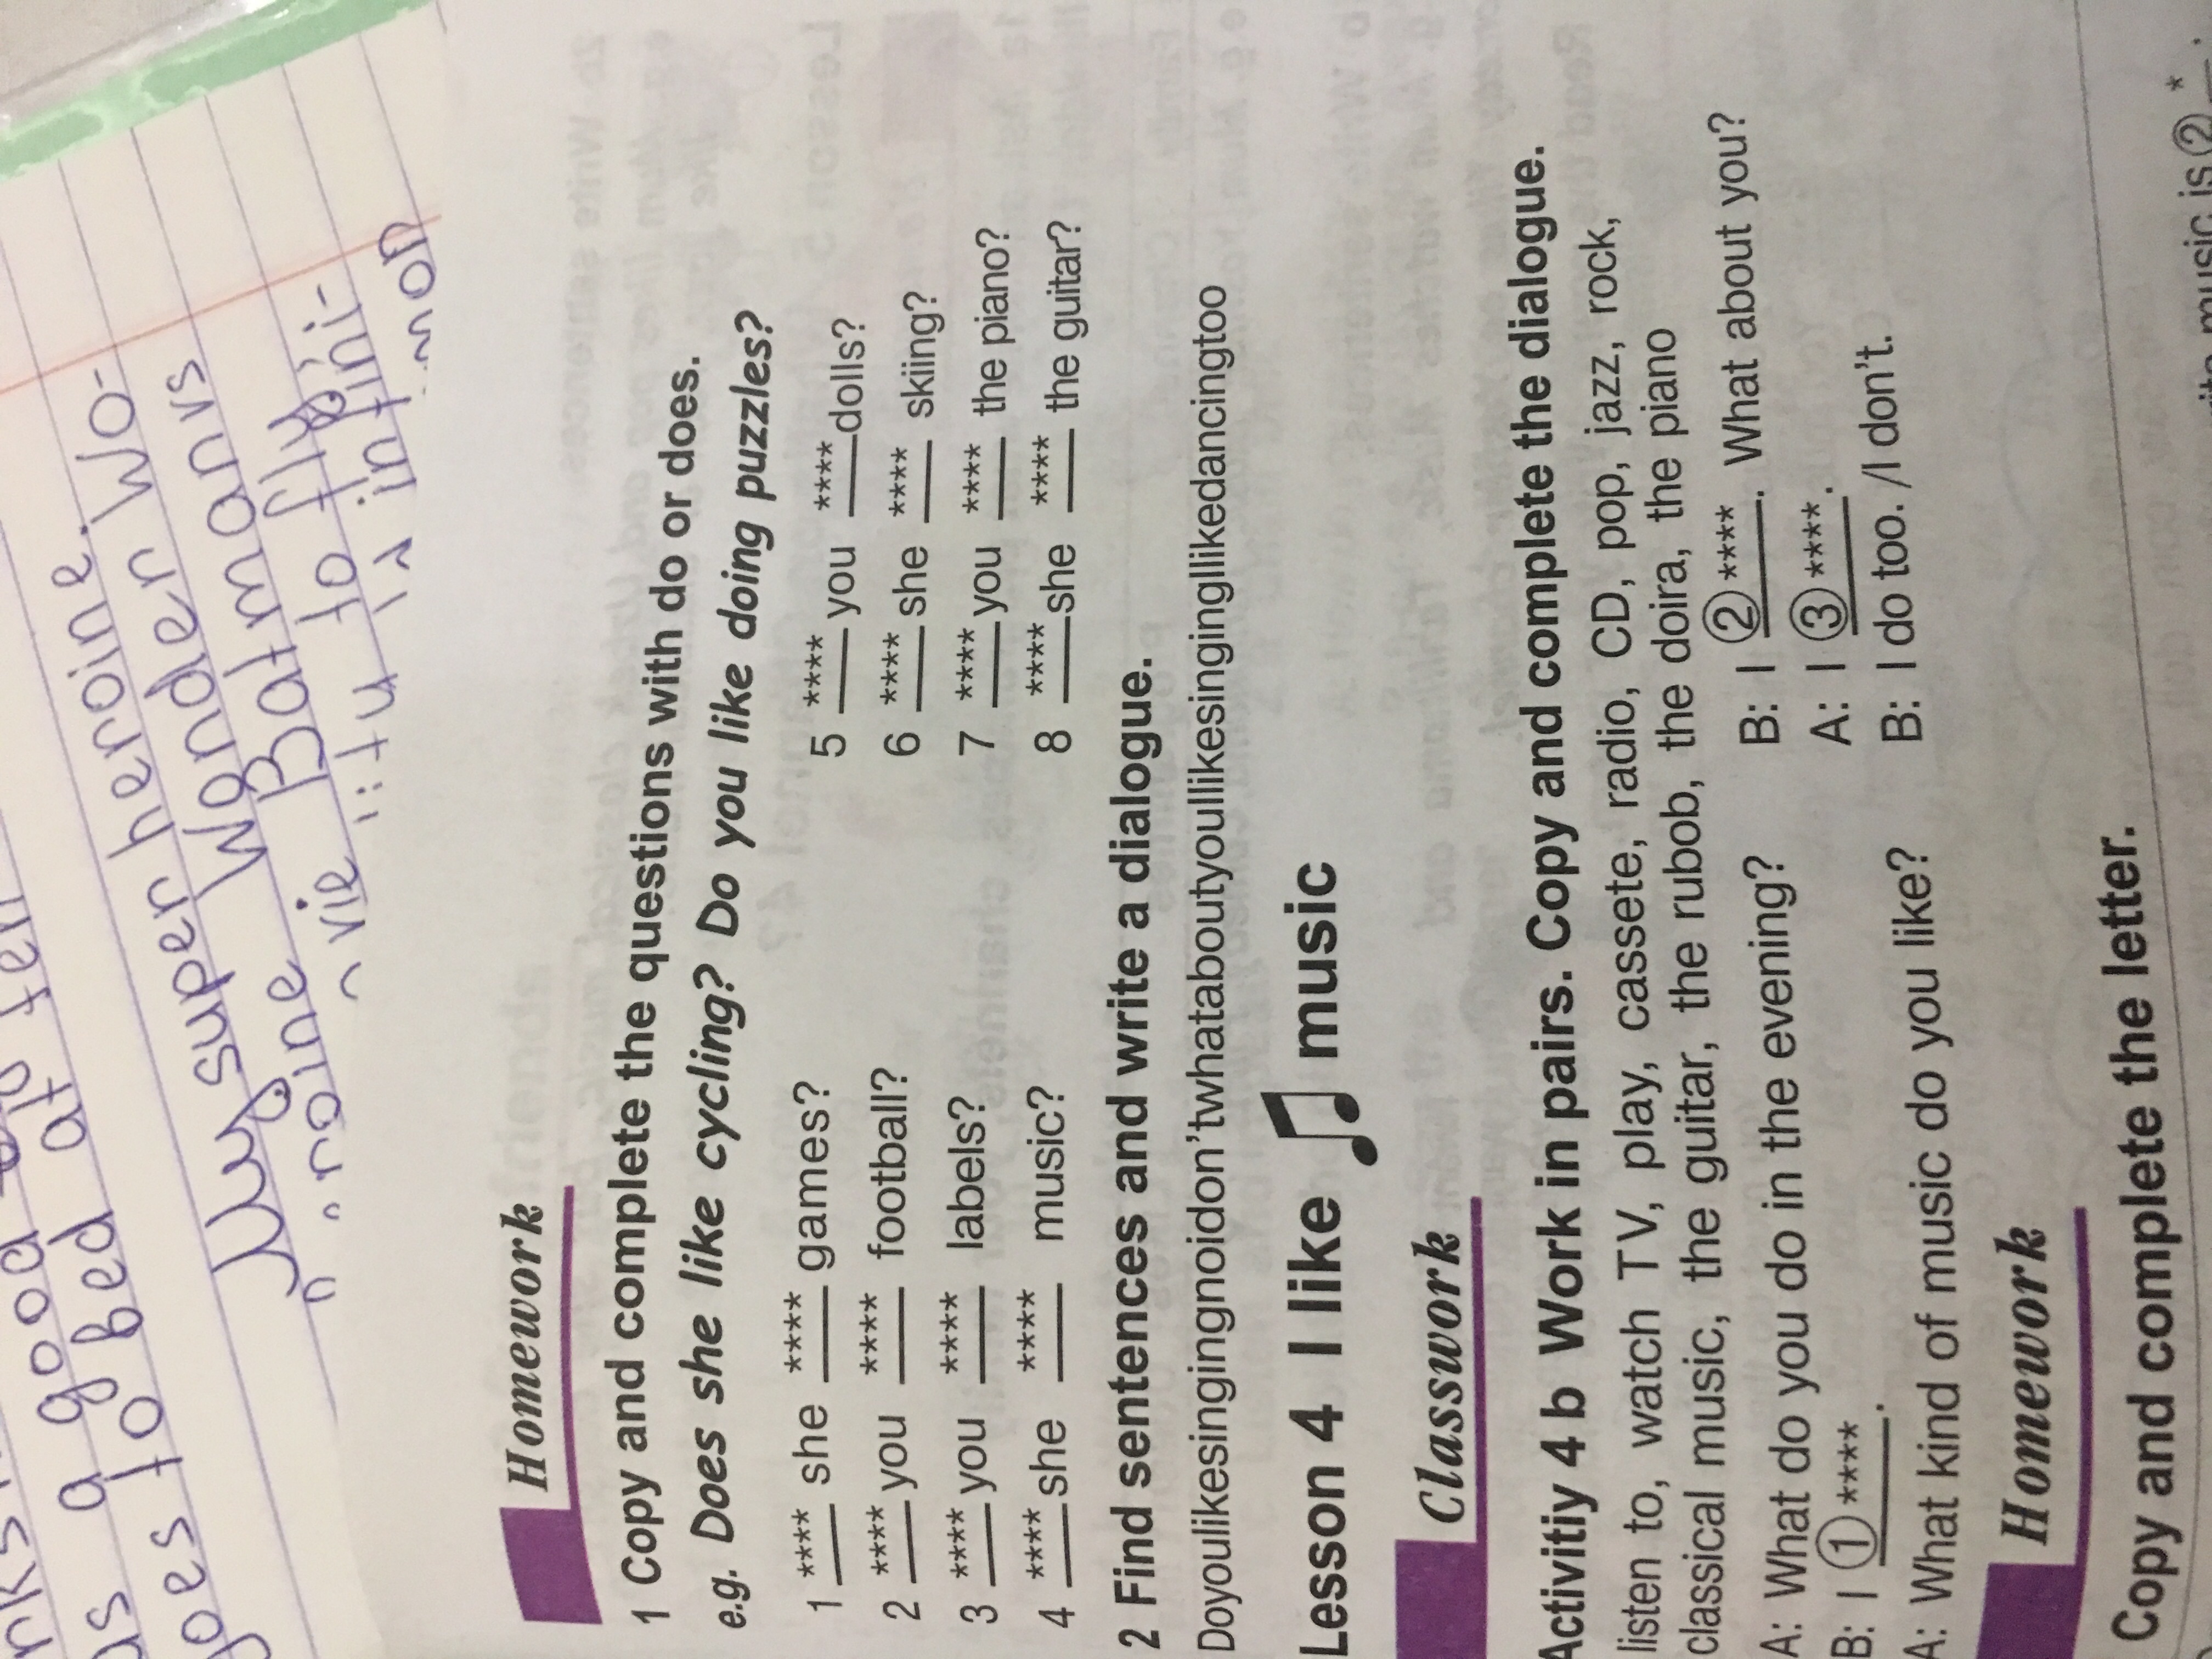 us a good
goes to bed at
My super heroine. Wo-
Wonder
Batman vs
to fly
Homework
1 Copy and complete the questions with do or does.
e.g. Does she like cycling? Do you like doing puzzles?
1 **** she **** games?
2 **** you **** football?
3 **** you **** labels?
4 **** she **** music?
5 **** you **** dolls?
6 **** she **** skiing?
7 **** you **** the piano?
8 **** she **** the guitar?
2 Find sentences and write a dialogue.
Doyoulikesingingnoidon'twhataboutyouIlikesingingIlikedancingtoo
Lesson 4 I like music
Classwork
Activitiy 4 b Work in pairs. Copy and complete the dialogue.
listen to, watch TV, play, cassete, radio, CD, pop, jazz, rock,
classical music, the guitar, the rubob, the doira, the piano
A: What do you do in the evening?
B: I ① ****.
A: What kind of music do you like?
B: I ② ****. What about you?
A: I ③ ****.
B: I do too. /I don't.
Homework
Copy and complete the letter.
music is ② *